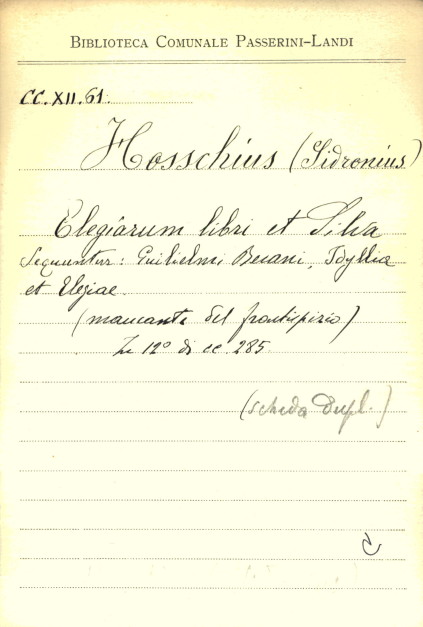 BIBLIOTECA COMUNALE PASSERINI-LANDI
CC.XII.61.
Hosschius (Sidronius)
Elegiarum libri et Silva
Sequuntur: Guilielmi Becani, Idyllia
et Elegiae
(mancante del frontispizio)
In 12° di cc. 285
(scheda dupl.)